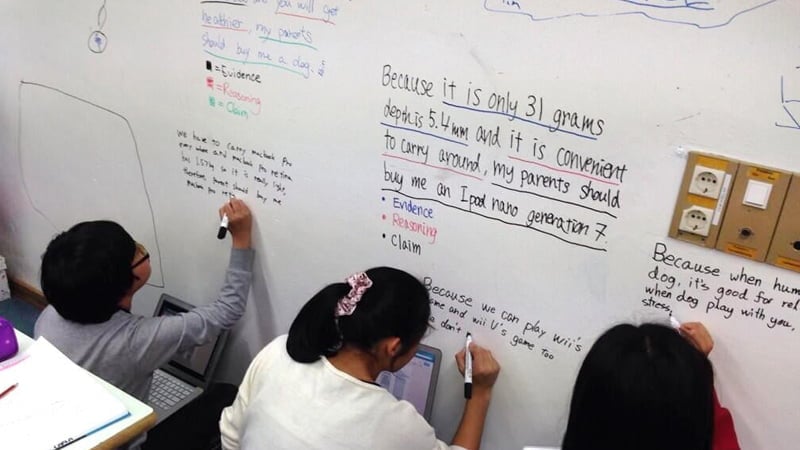 you will get
healthier, my parents
should buy me a dog.
= Evidence
= Reasoning
= Claim
we have to carry macbook pro
every where and macbook pro retina
has 1.57kg so it is really light,
therefore, parents should buy me
macbook pro
Because it is only 31 grams
depth is 5.4mm and it is convenient
to carry around, my parents should
buy me an Ipod nano generation 7.
• Evidence
• Reasoning
• Claim
Because we can play wii's
game and wii U's game too
don't
Because when hum
dog, it's good for rel
when dog play with you,
stress,